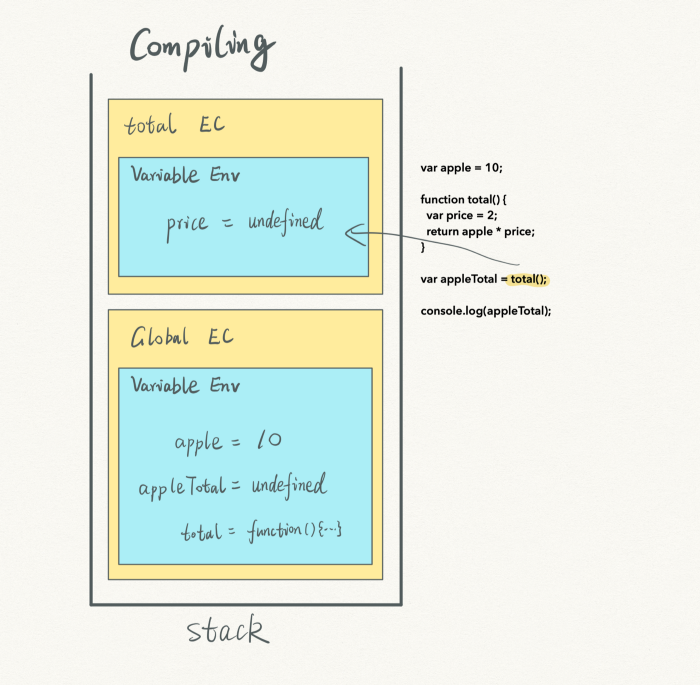 Compiling
total EC
Variable Env
price = undefined
Global EC
Variable Env
apple = 10
appleTotal = undefined
total = function(){...}
stack
var apple = 10;
function total() {
var price = 2;
return apple * price;
}
var appleTotal = total();
console.log(appleTotal);